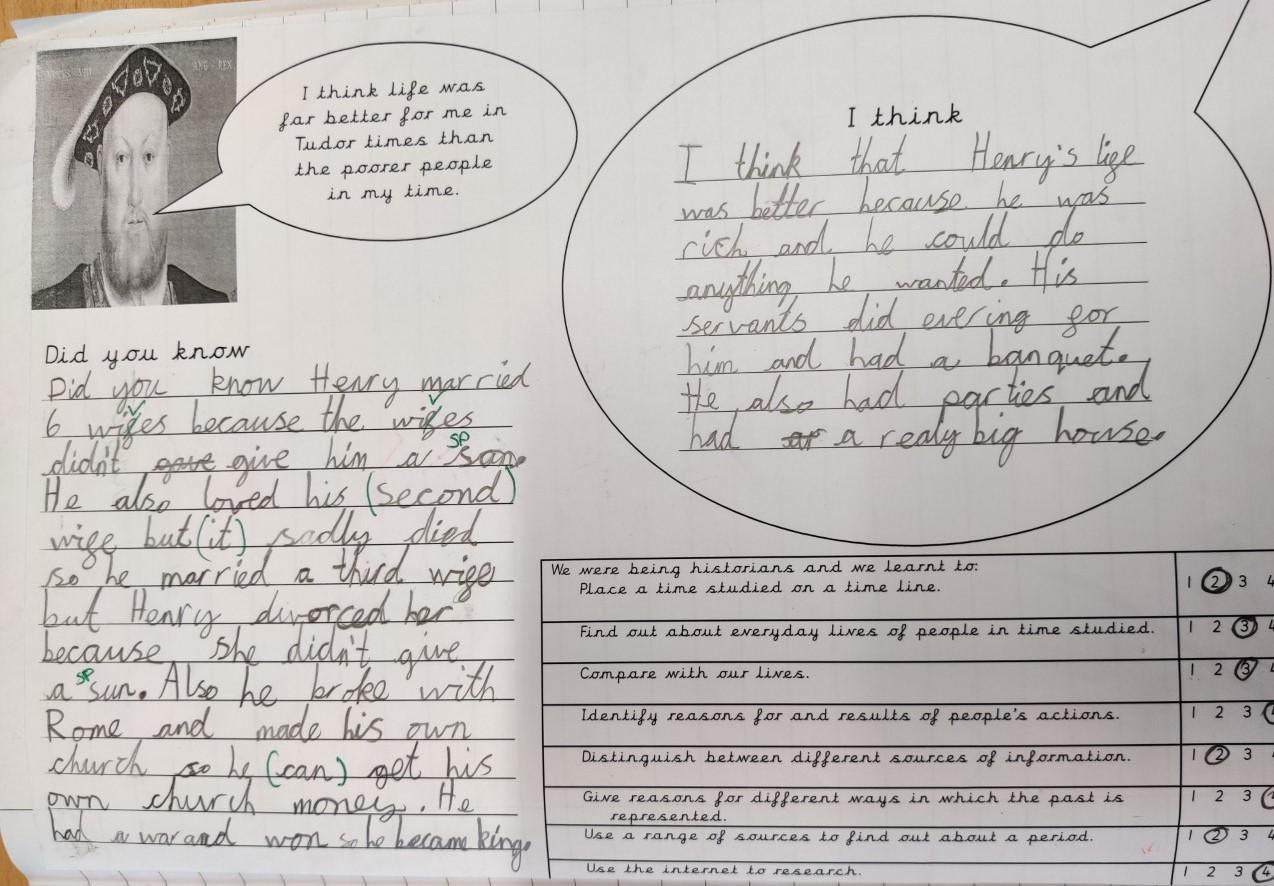 ANG·REX
I think life was
far better for me in
Tudor times than
the poorer people
in my time.
I think
I think that Henry's lige
was better because he was
rich and he could do
anything he wanted. His
servants did evering for
him and had a banquet.
He also had parties and
had ar a realy big house.
Did you know
Did you know Henry married
6 wifes because the wifes
didn't gave give him a sp son.
He also loved his (second)
wige but (it) sadly died
so he married a third wige
but Henry divorced her
because she didn't give
a sp sun. Also he broke with
Rome and made his own
church so he (can) get his
own church money. He
had a war and won so he became king.
We were being historians and we learnt to:
Place a time studied on a time line. 1 2 3 4
Find out about everyday lives of people in time studied. 1 2 3 4
Compare with our lives. 1 2 3 4
Identify reasons for and results of people's actions. 1 2 3
Distinguish between different sources of information. 1 2 3 4
Give reasons for different ways in which the past is 1 2 3
represented.
Use a range of sources to find out about a period. 1 2 3 4
Use the internet to research. 1 2 3 4